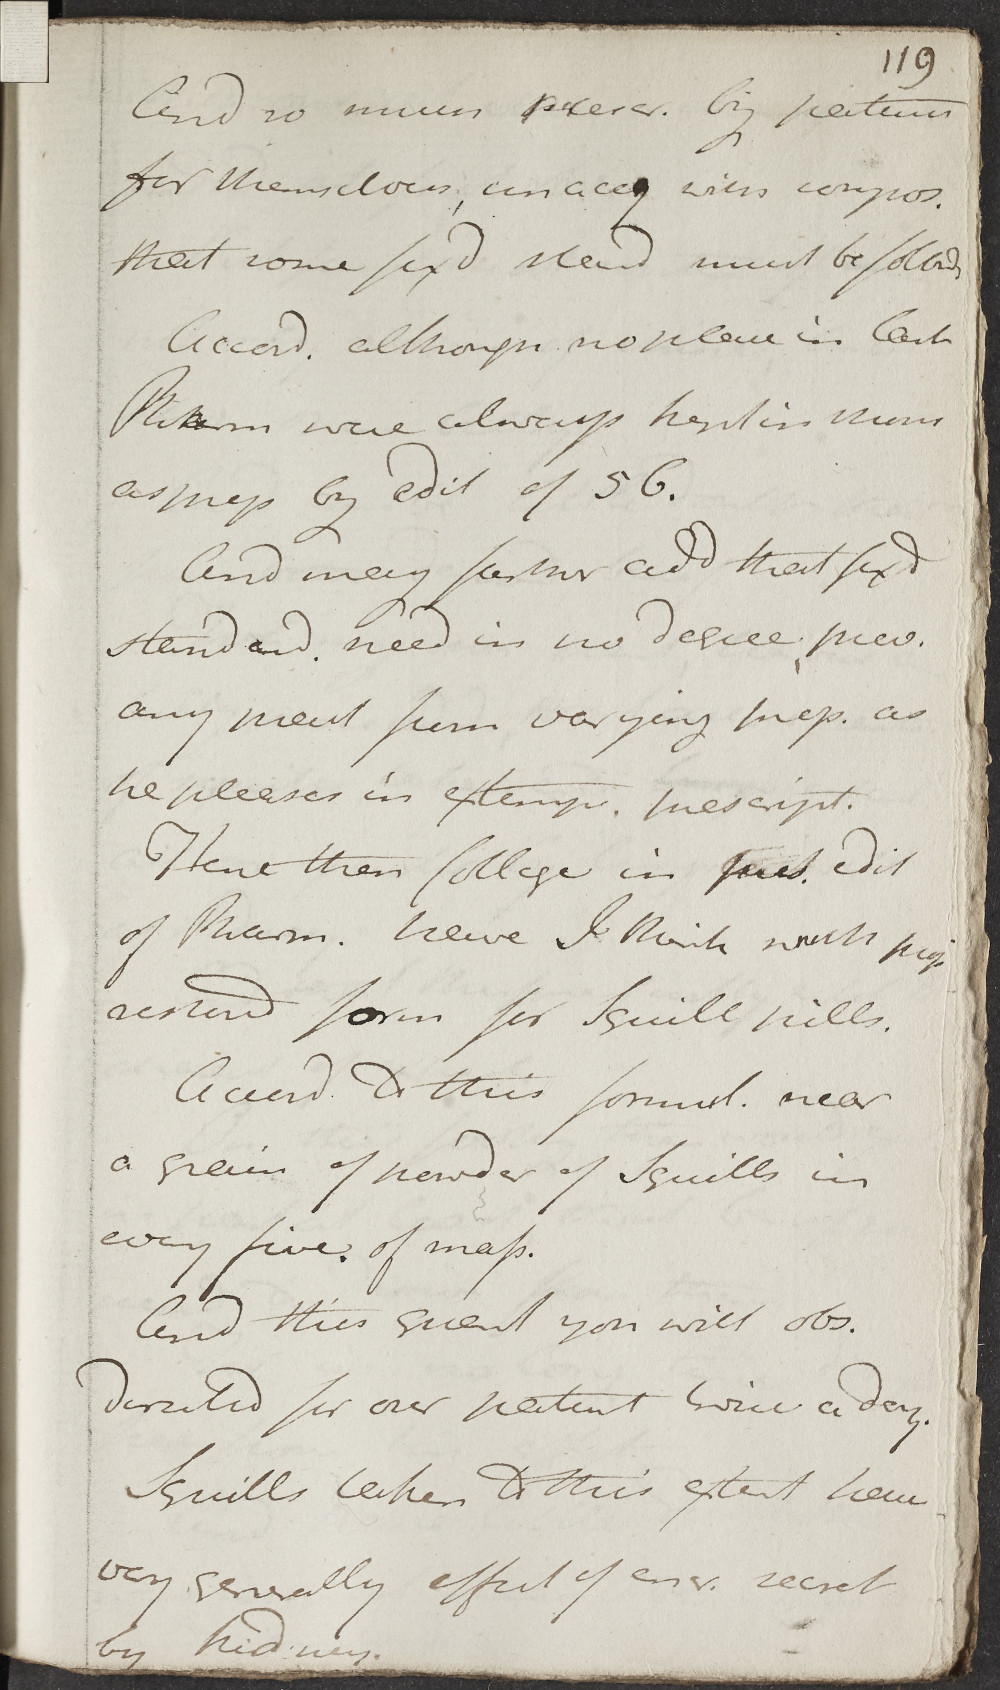 119
And so much prescr. by patients
for themselves, unacq with compos.
that some fixd stand must be followd
Accord. although no place in last
Pharm were always kept in Shops
as prep by edit of 56.
And may farther add that fixd
standard. need in no degree, prev.
any pract from varying prep. as
he pleases in extemp. prescript.
Here then College in pres. edit
of Pharm. have I think with prop
restored form for Squill pills.
Accord. to this formul. near
a grain of powder of Squills in
every five. of mass.
And this quant you will obs.
directed for our patient twice a day.
Squills taken to this extent have
very generally effect of encr. secret
by kidney.